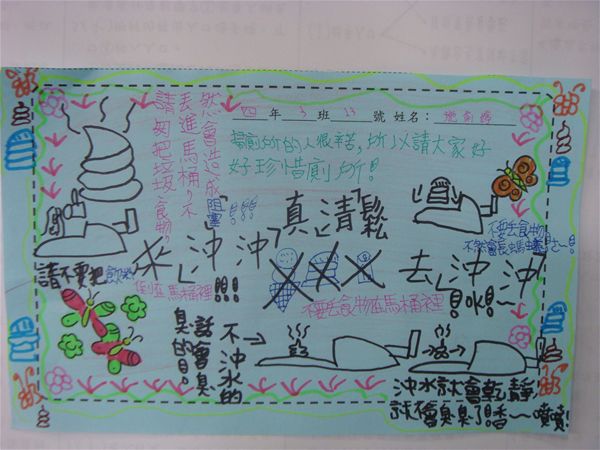 四年3班13號 姓名：
掃廁所的人很辛苦，所以請大家好
好珍惜廁所！
請勿把垃圾、食物，
丟進馬桶，不
然會造成阻塞!!!
真「清鬆」
來「沖沖」!!!
去「沖沖」!水!~
不要丟食物，
不然會長螞蟻~!
請不要把飲料
倒在馬桶裡!!!
不要丟食物在馬桶裡
不沖水的
話會臭
臭的目。
沖水就會乾靜!
就不會臭臭了!香~噴噴!